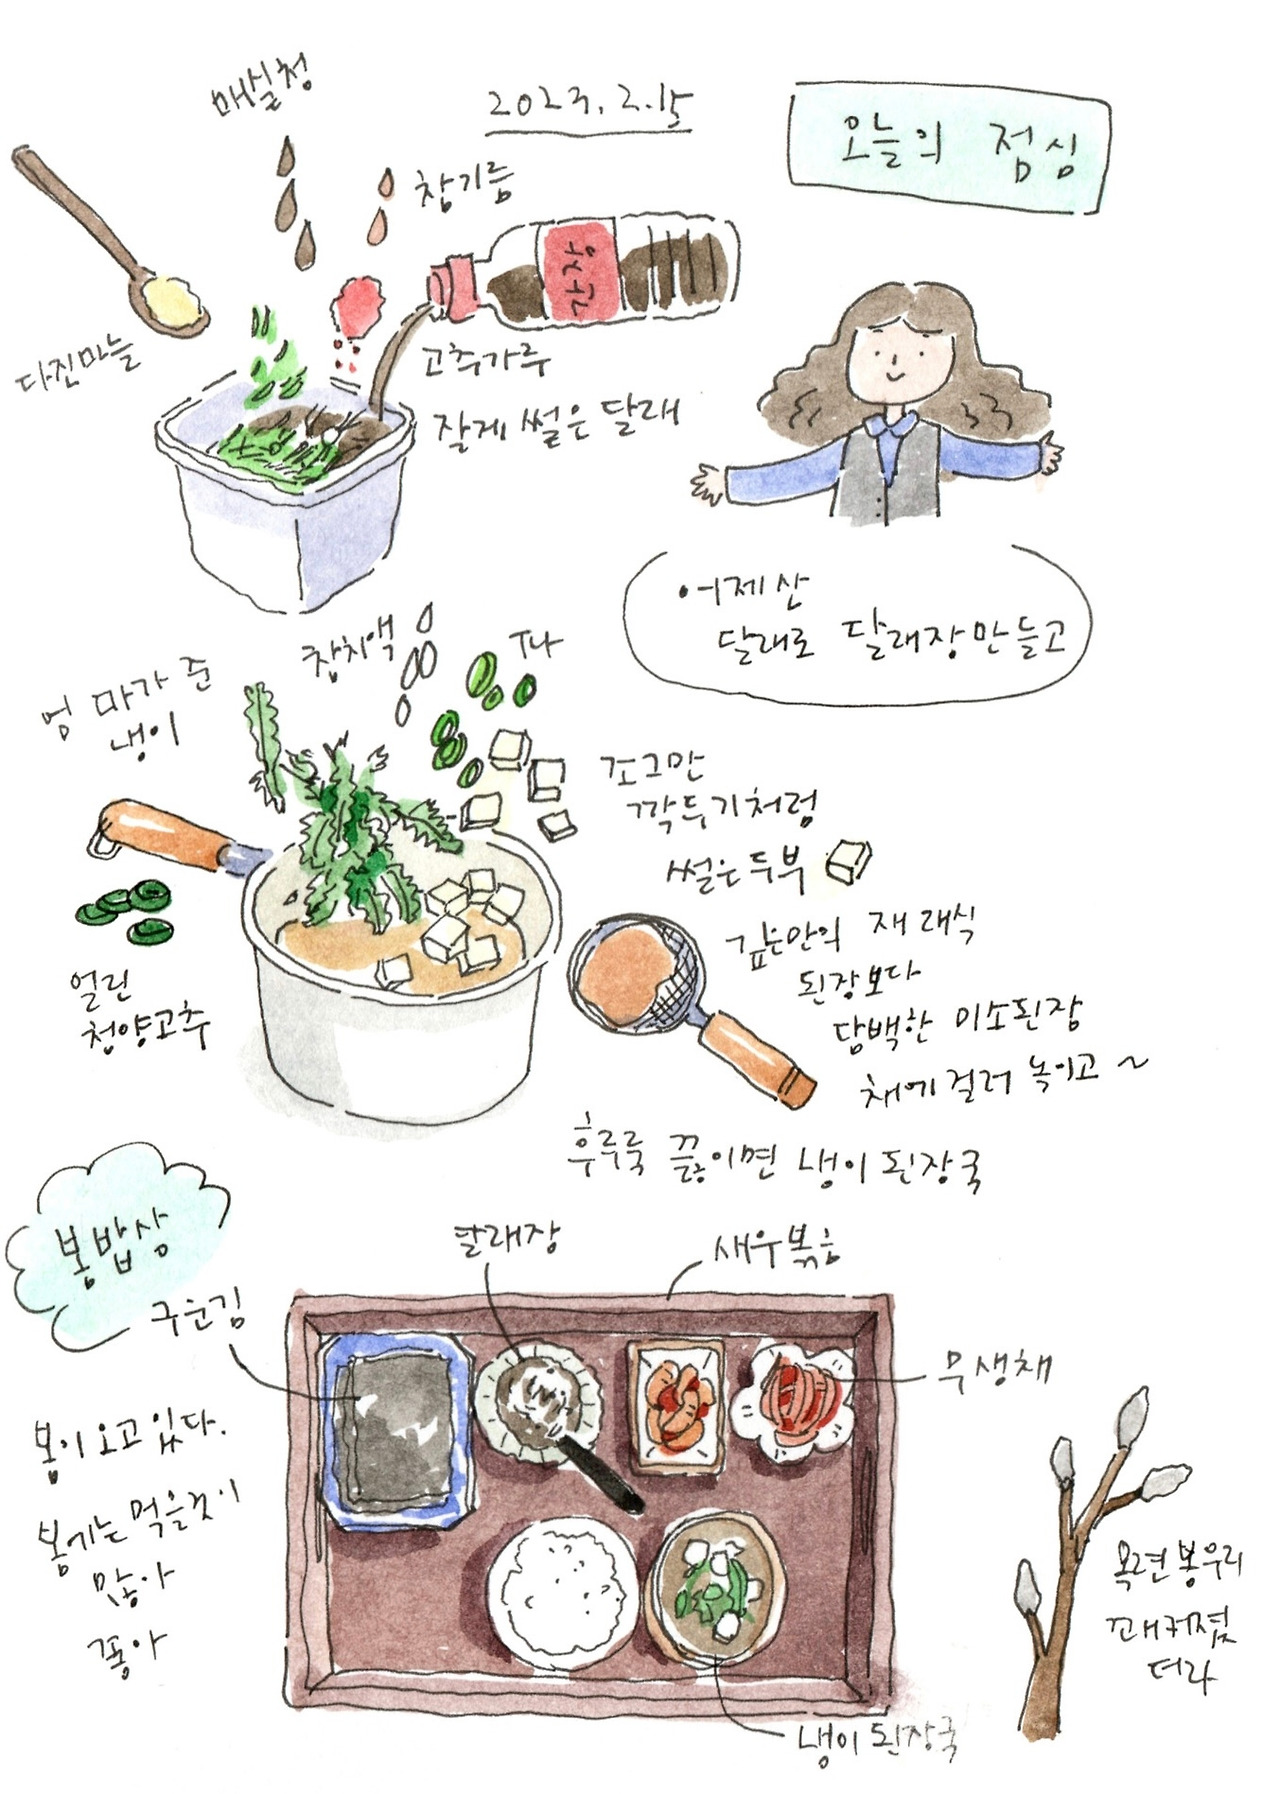 2023. 2. 15
오늘의 점심
매실청
참기름
간장
다진마늘
고추가루
잘게 썰은 달래
• 어제 산
달래로 달래장 만들고
참치액
파
엄마가 준
냉이
조그만
깍두기처럼
썰은 두부
얼린
청양고추
깊은맛의 재래식
된장보다
담백한 미소된장
채에 걸러 녹이고 ~
후루룩 끓이면 냉이 된장국
봄밥상
구운김
달래장
새우볶음
무생채
봄이 오고 있다.
봄에는 먹을것이
많아
좋아
목련 봉우리
꽤 커졌
더라
냉이 된장국